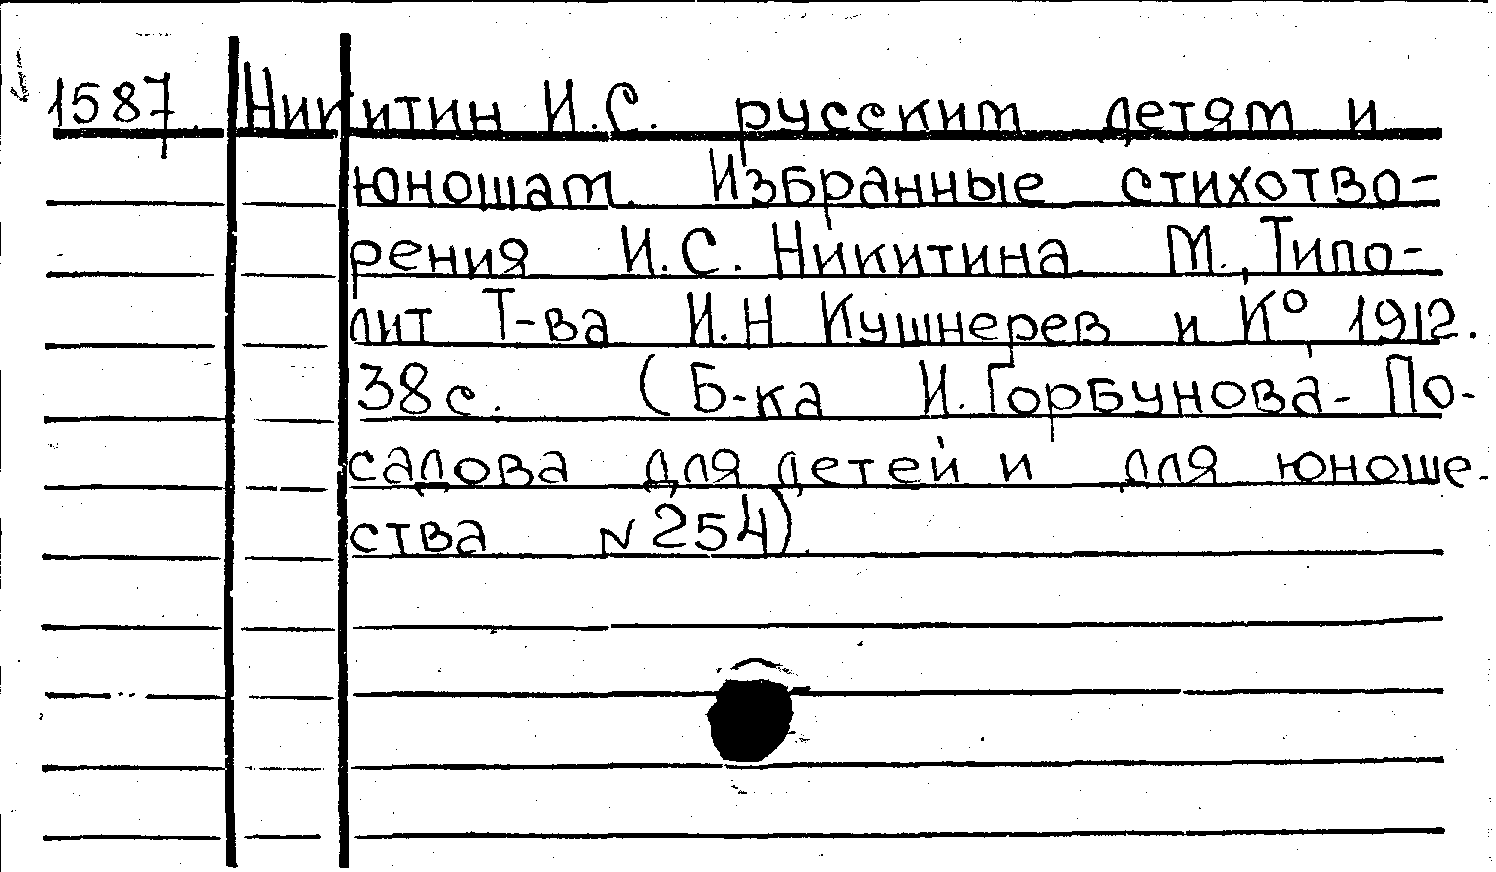 1587. Никитин И.С. русским детям и
юношам. Избранные стихотво-
рения И.С. Никитина М., Типо-
лит Т-ва И.Н Кушнерев и К° 1912.
38с. (Б-ка И. Горбунова-По-
садова для детей и для юноше-
ства N254).